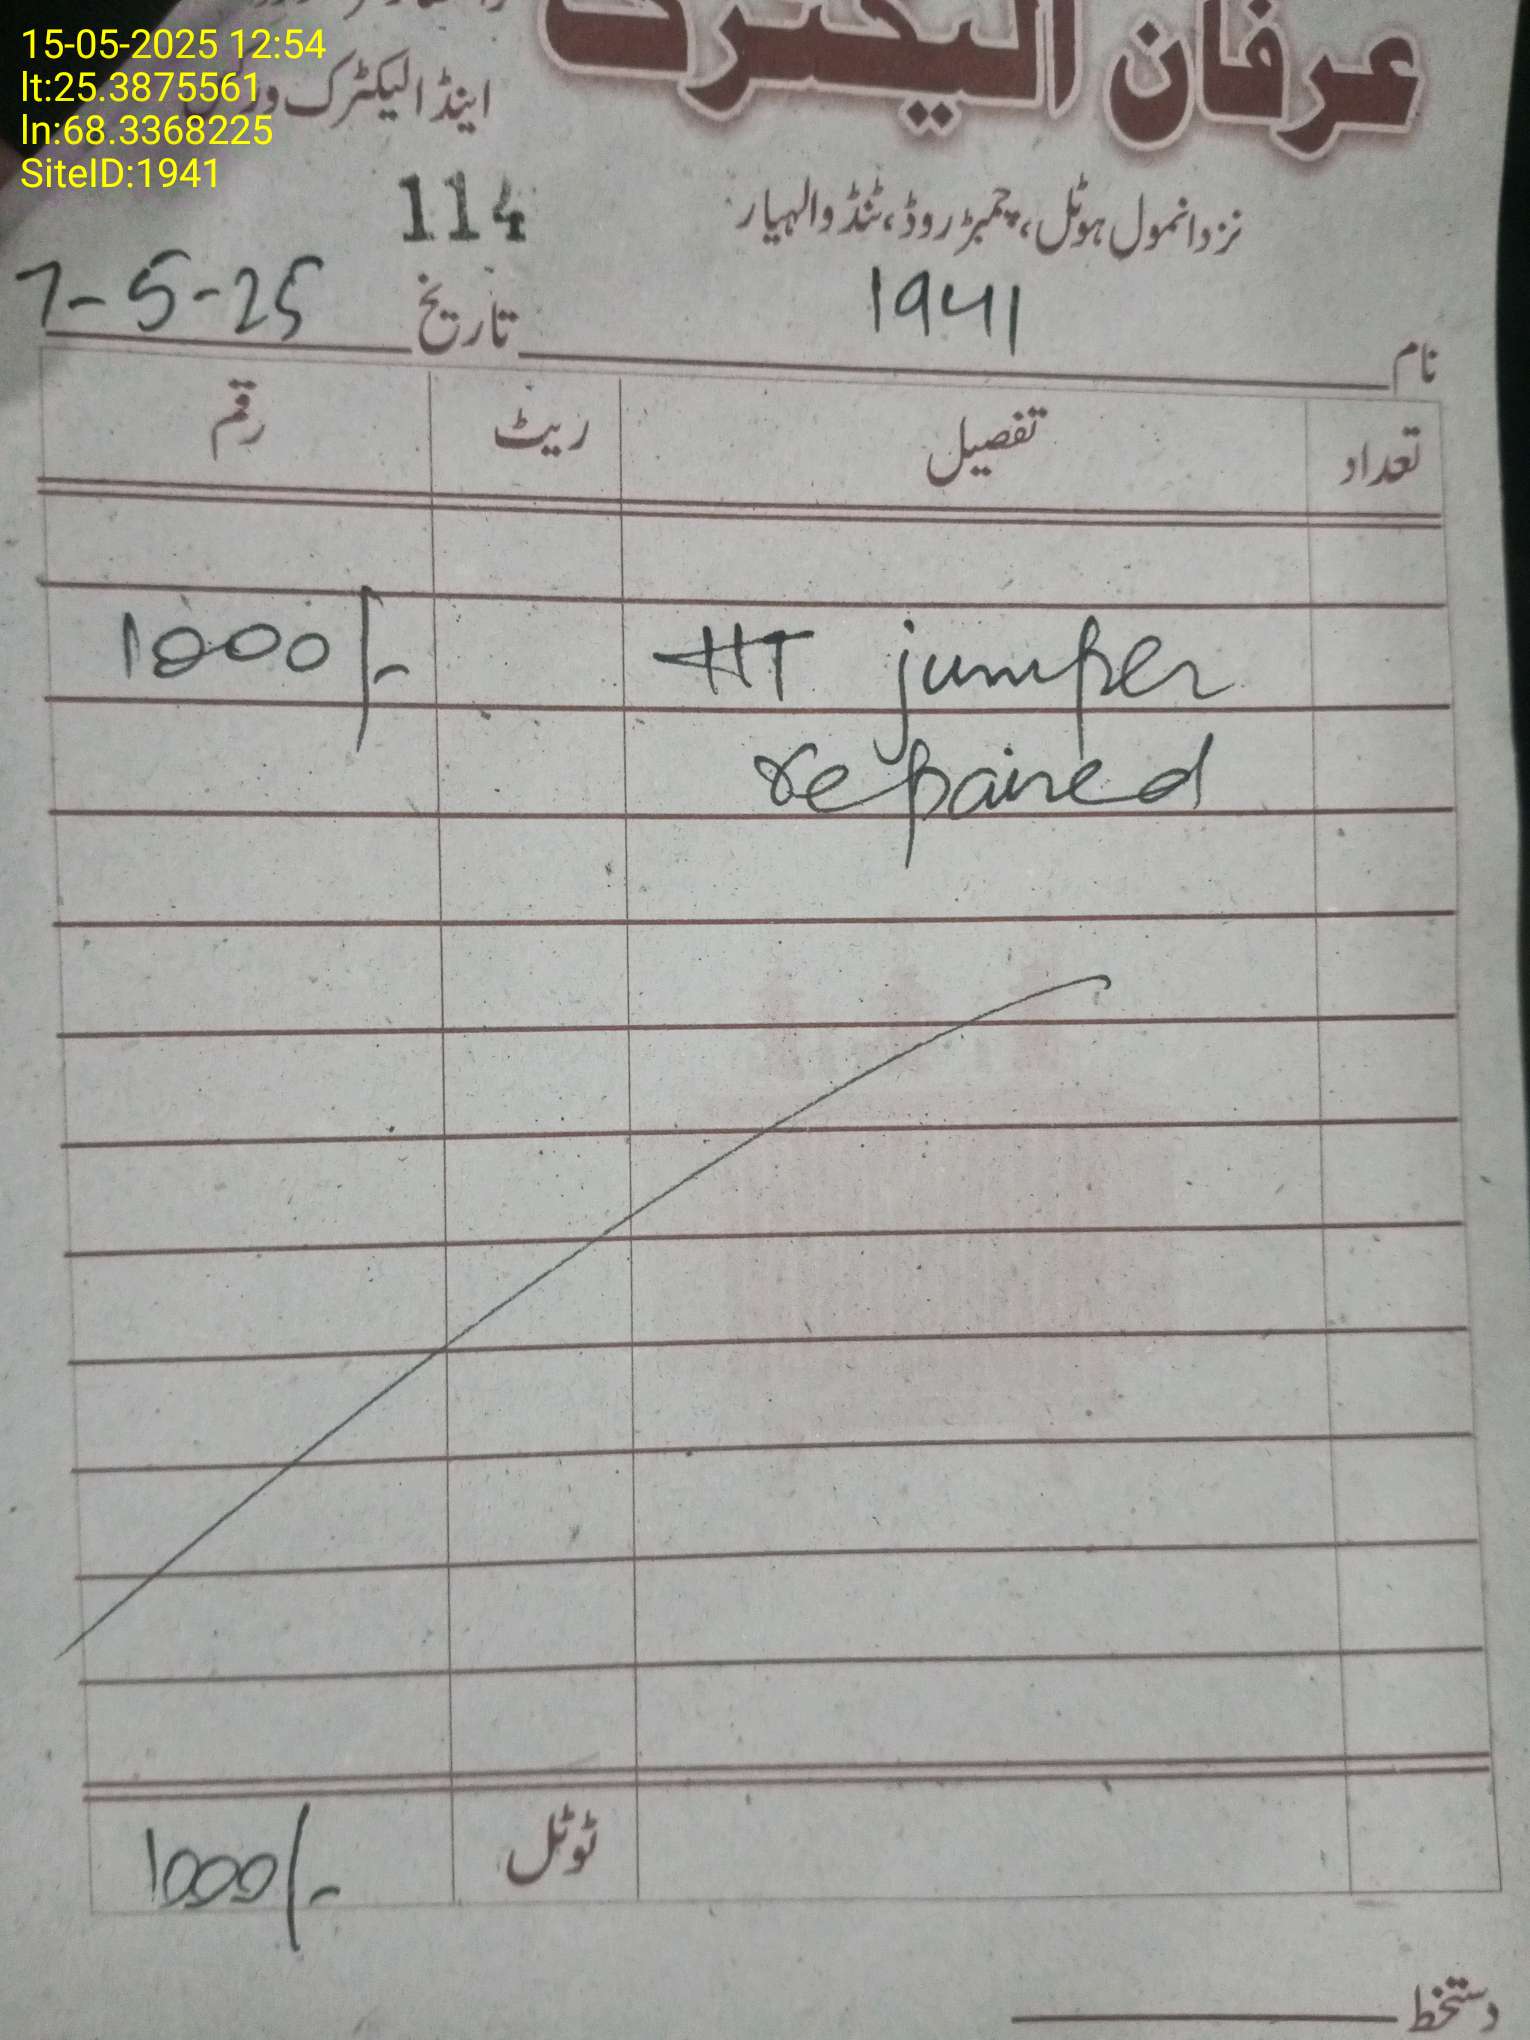 15-05-2025 12:54
lt:25.3875561
ln:68.3368225
SiteID:1941
عرفان الیکٹرک
اینڈ الیکٹرک
نزد انمول ہوٹل، چمبڑ روڈ، ٹنڈوالہیار
114
نام 1941 تاریخ 7-5-25
تعداد تفصیل ریٹ رقم
HT jumper 1000/-
repaired
ٹوٹل 1000/-
دستخط